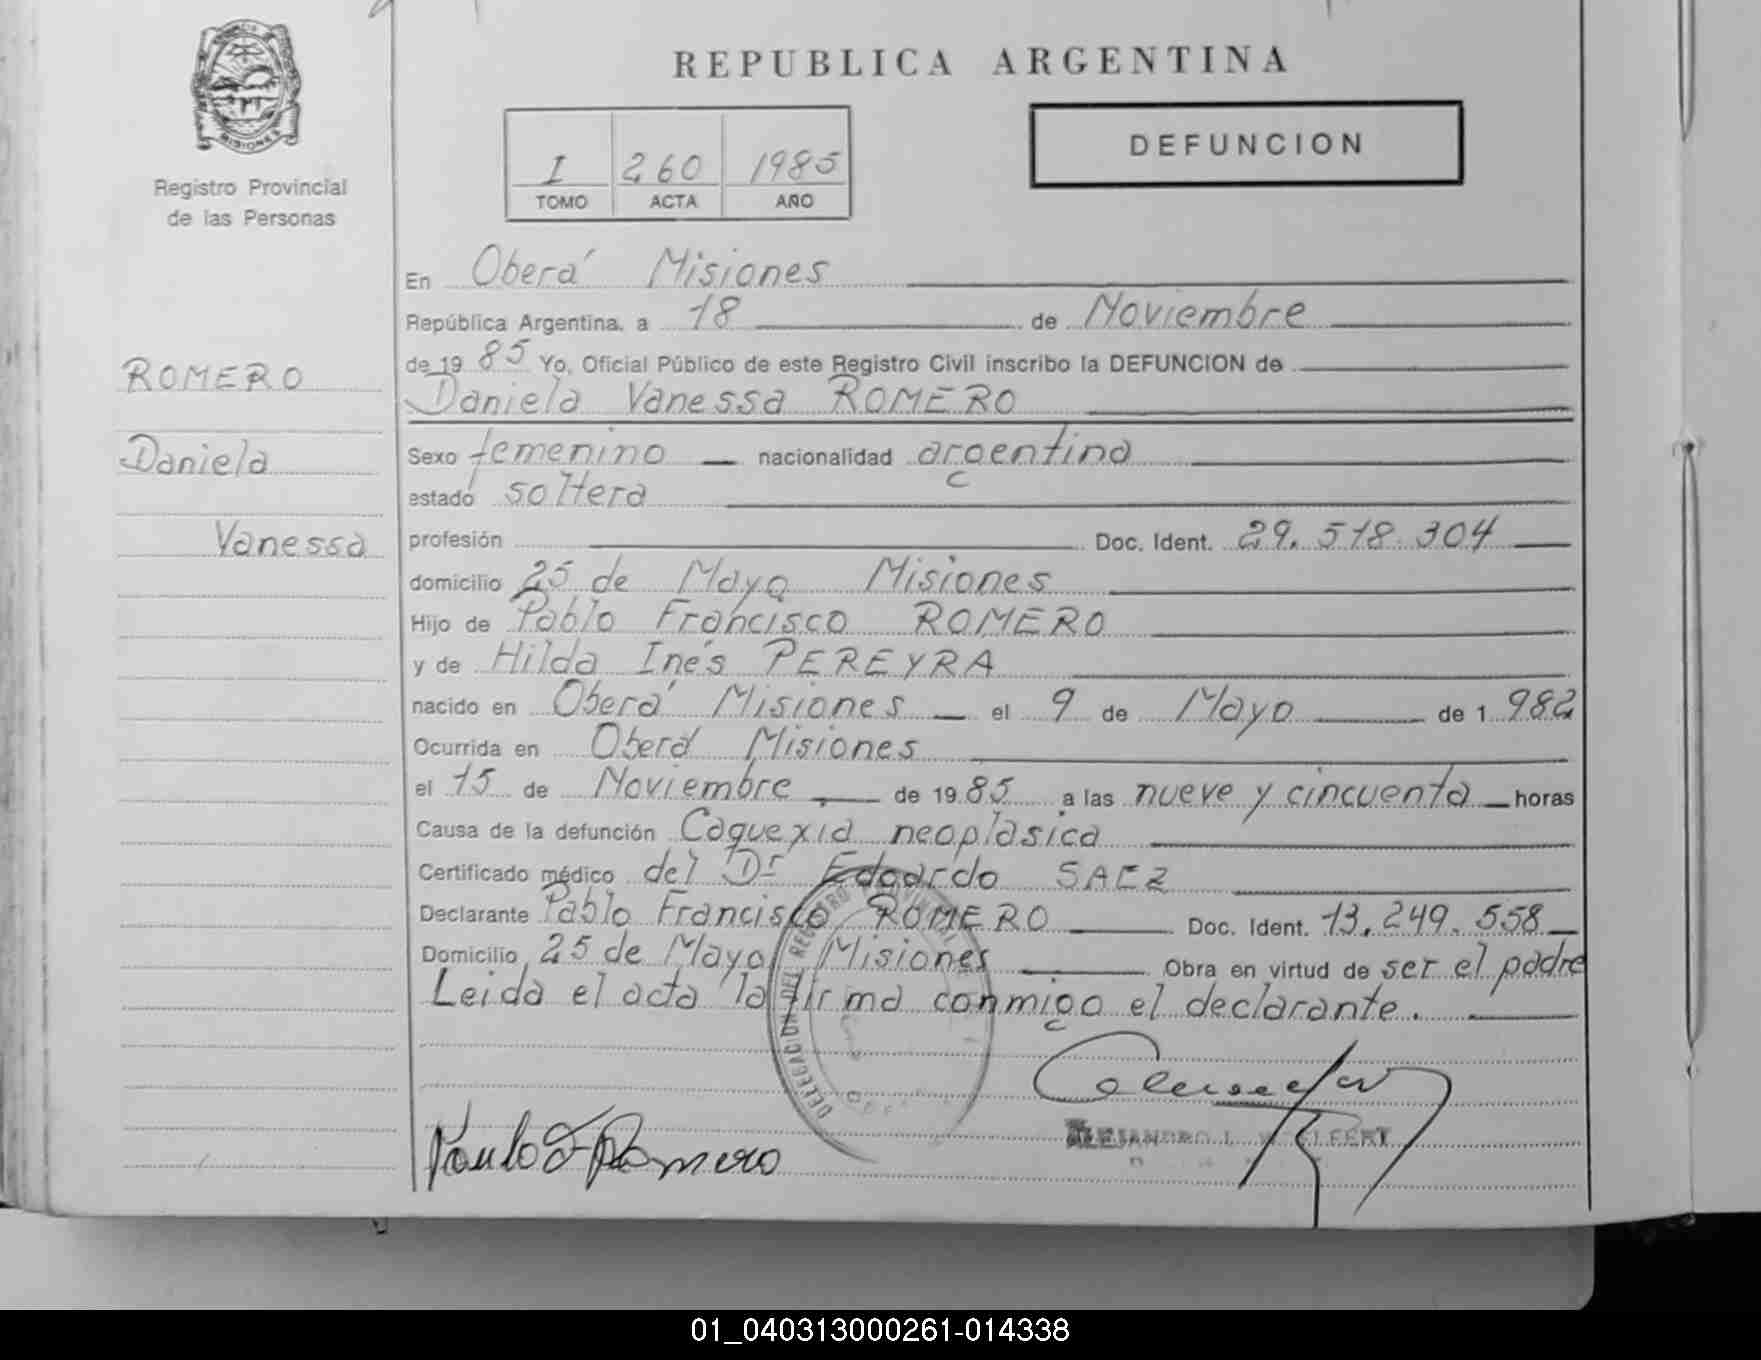 REPUBLICA ARGENTINA
MISIONES
Registro Provincial
de las Personas
I 260 1985
TOMO ACTA AÑO
DEFUNCION
ROMERO
Daniela
Vanessa
En Oberá Misiones
República Argentina, a 18 de Noviembre
de 19 85 Yo, Oficial Público de este Registro Civil inscribo la DEFUNCION de
Daniela Vanessa ROMERO
Sexo femenino nacionalidad argentina
estado soltera
profesión Doc. Ident. 29.518.304
domicilio 25 de Mayo Misiones
Hijo de Pablo Francisco ROMERO
y de Hilda Inés PEREYRA
nacido en Oberá Misiones el 9 de Mayo de 1 982
Ocurrida en Oberá Misiones
el 15 de Noviembre de 19 85 a las nueve y cincuenta horas
Causa de la defunción Caquexia neoplasica
Certificado médico del Dr Edgardo SAEZ
Declarante Pablo Francisco ROMERO Doc. Ident. 13.249.558
Domicilio 25 de Mayo Misiones Obra en virtud de ser el padre
Leida el acta la firma conmigo el declarante.
DELEGACION DEL REGISTRO PROVINCIAL
Paulo F Romero
ALEJANDRO
01_040313000261-014338